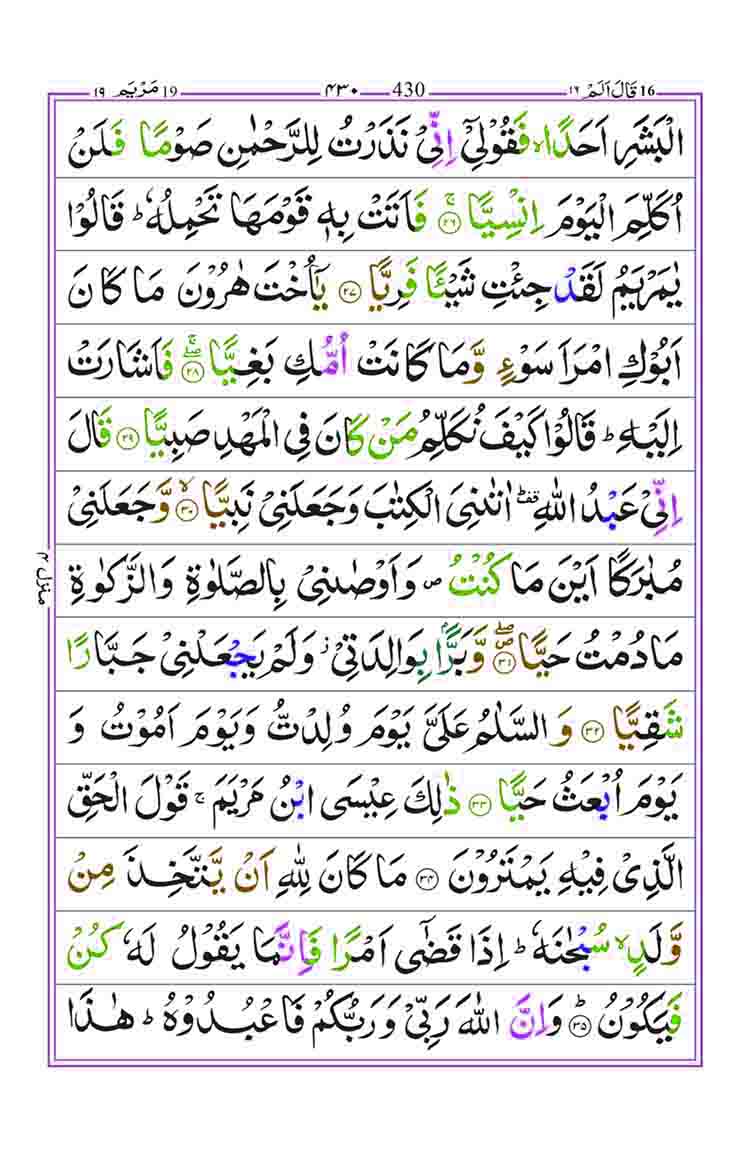 ١٩ مَرْيَم 19 ٤٣٠ 430 ١٦ قَالَ اَلَمْ 16
الْبَشَرِ اَحَدًاۙ فَقُوْلِيْۤ اِنِّيْ نَذَرْتُ لِلرَّحْمٰنِ صَوْمًا فَلَنْ
اُكَلِّمَ الْيَوْمَ اِنْسِيًّاۚ ٢٦ فَاَتَتْ بِهٖ قَوْمَهَا تَحْمِلُهٗؕ قَالُوْا
يٰمَرْيَمُ لَقَدْ جِئْتِ شَيْـًٔا فَرِيًّا ٢٧ يٰۤاُخْتَ هٰرُوْنَ مَا كَانَ
اَبُوْكِ امْرَاَ سَوْءٍ وَّمَا كَانَتْ اُمُّكِ بَغِيًّاۖۚ ٢٨ فَاَشَارَتْ
اِلَيْهِؕ قَالُوْا كَيْفَ نُكَلِّمُ مَنْ كَانَ فِي الْمَهْدِ صَبِيًّا ٢٩ قَالَ
اِنِّيْ عَبْدُ اللّٰهِؕ۫ اٰتٰىنِيَ الْكِتٰبَ وَجَعَلَنِيْ نَبِيًّاۙ ٣٠ وَّجَعَلَنِيْ
مُبٰرَكًا اَيْنَ مَا كُنْتُ۪ وَاَوْصٰنِيْ بِالصَّلٰوةِ وَالزَّكٰوةِ
مَا دُمْتُ حَيًّا۪ۖ ٣١ وَّبَرًّۢا بِوَالِدَتِيْؗ وَلَمْ يَجْعَلْنِيْ جَبَّارًا
شَقِيًّا ٣٢ وَالسَّلٰمُ عَلَيَّ يَوْمَ وُلِدْتُّ وَيَوْمَ اَمُوْتُ وَ
يَوْمَ اُبْعَثُ حَيًّا ٣٣ ذٰلِكَ عِيْسَى ابْنُ مَرْيَمَۚ قَوْلَ الْحَقِّ
الَّذِيْ فِيْهِ يَمْتَرُوْنَ ٣٤ مَا كَانَ لِلّٰهِ اَنْ يَّتَّخِذَ مِنْ
وَّلَدٍۙ سُبْحٰنَهٗؕ اِذَا قَضٰۤى اَمْرًا فَاِنَّمَا يَقُوْلُ لَهٗ كُنْ
فَيَكُوْنُؕ ٣٥ وَاِنَّ اللّٰهَ رَبِّيْ وَرَبُّكُمْ فَاعْبُدُوْهُؕ هٰذَا
منزل ٤